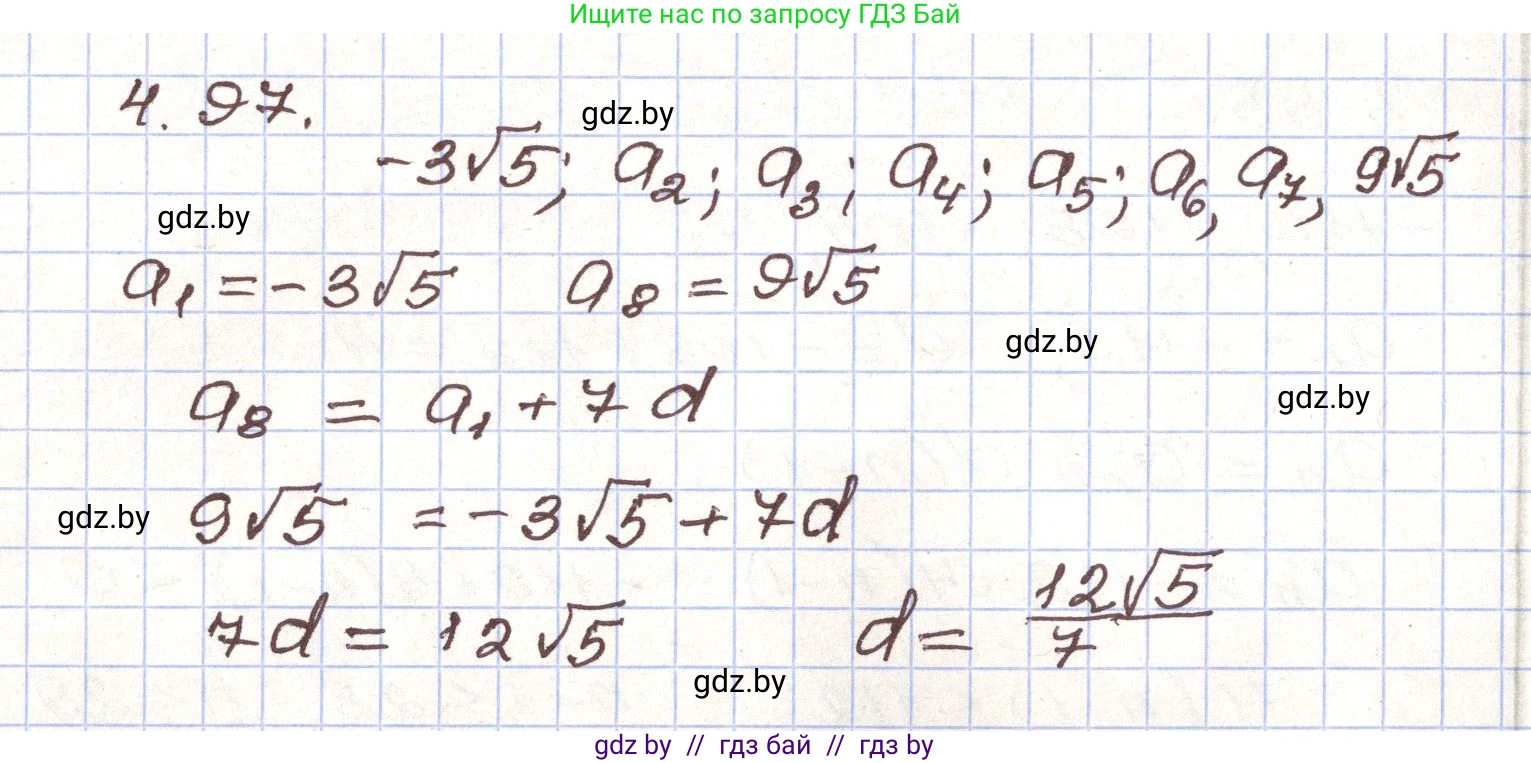 Ищите нас по запросу ГДЗ Бай
4. 97.
gdz.by
-3√5; a₂; a₃; a₄; a₅; a₆, a₇, 9√5
gdz.by
a₁ = -3√5 a₈ = 9√5
gdz.by
a₈ = a₁ + 7d
gdz.by
gdz.by
9√5 = -3√5 + 7d
7d = 12√5 d = 12√5/7
gdz.by
gdz by // гдз бай // гдз by